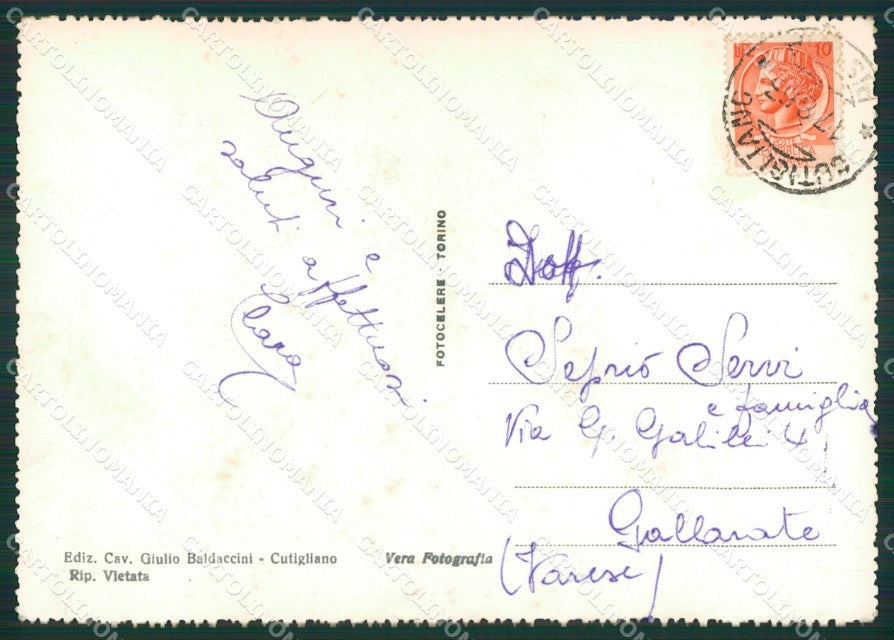 Auguri e
saluti affettuosi
Clara
FOTOCELERE - TORINO
10
CUTIGLIANO
Dott.
Seprio Servi
e famiglia
Via G. Galilei 4
Gallarate
(Varese)
Ediz. Cav. Giulio Baldaccini - Cutigliano
Rip. Vietata
Vera Fotografia
CARTOLINOMANIA